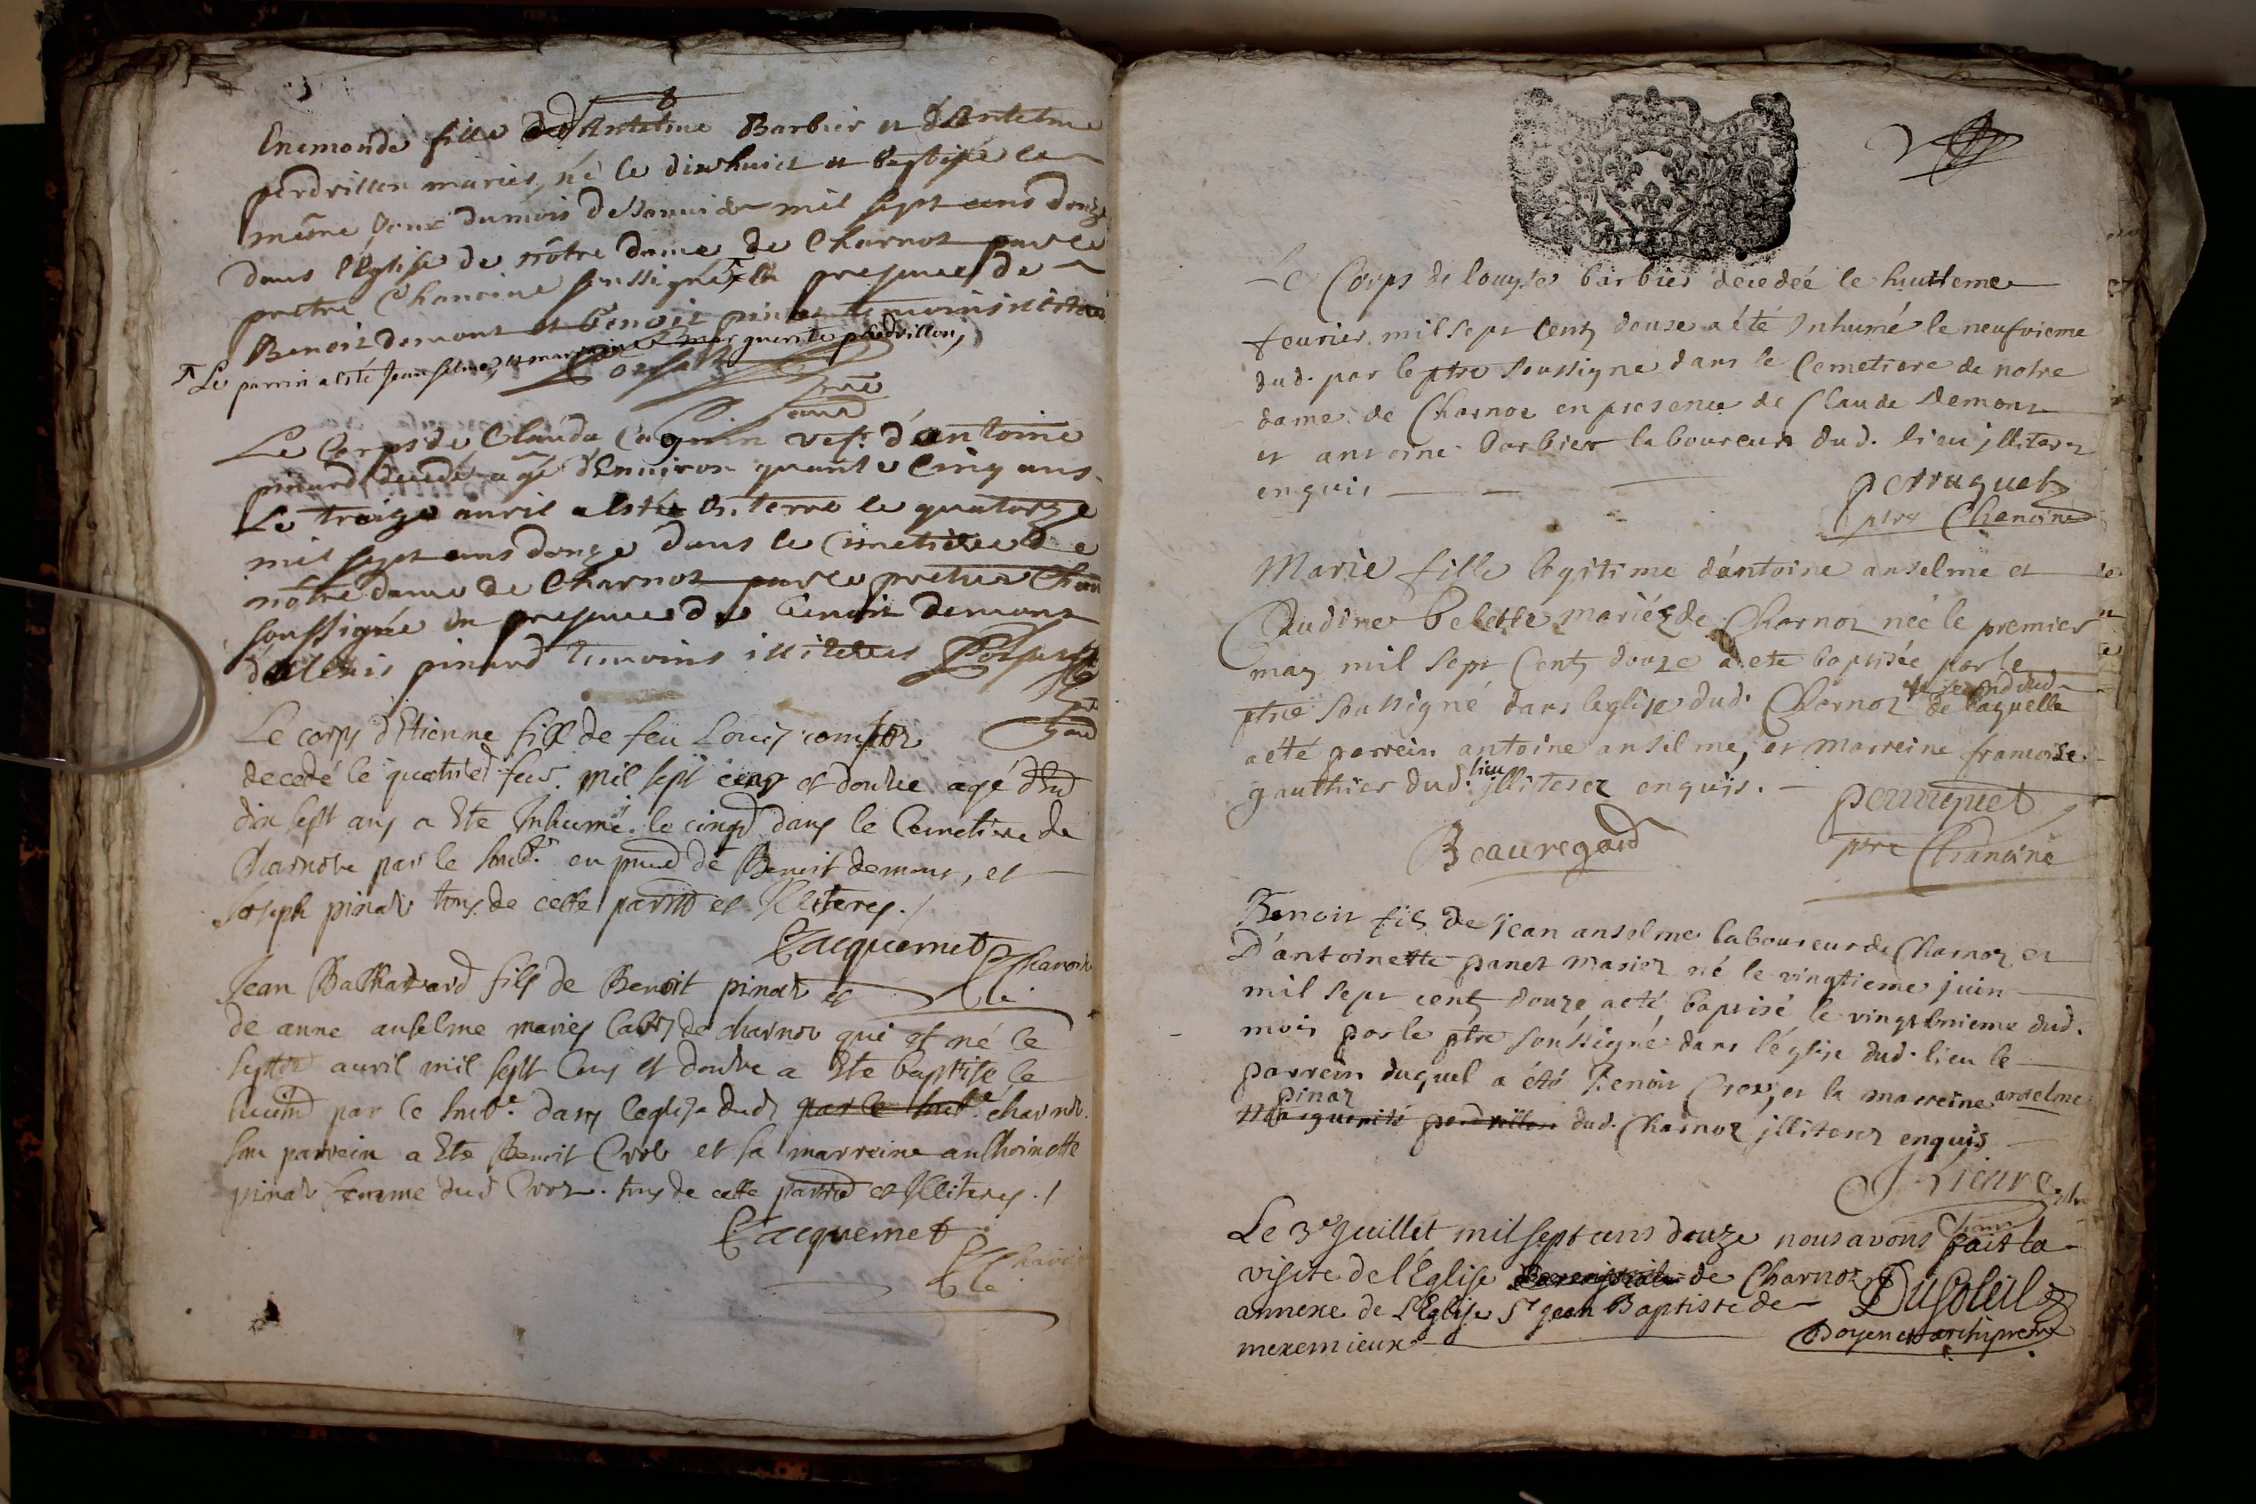 Enemonde fille d'Antelme Barbier et d'Antelme
perdrillon mariés, né le dixhuict et baptisée le
même jour du mois de Janvier mil sept cens douze
dans l'Eglise de nôtre dame de Charnoz par le
prêtre Chanoine soussigné en presence de
Benoit demont et Benoit pinar temoins illiterés
Le parrin a esté Jean selme, et marraine Marguerite perdrillon,
Le Corps de Claudia vef. d'antoine
pinard decedé agé d'Environ quante Cinq ans
Le traize avril a esté Enterré le quatorze
mil sept cens douze dans le Cimetiere de
nôtre dame de Charnoz par le pretre Chan
soussignée en presence de Benoit demont
d'alexis pinard temoins illiteres
Le corps d'Etienne fill de feu Louis
decedé le quatried feur. mil sept cens et douze agé de
dix sept ans a Ete Inhumé le cinqd dans le Cemetiere de
Charnoz par le Sned. en pnce de Benoit demont, et
Joseph pinar tous de cette parroe et Illiteres./
Jacquemet
Chanoine
Jean Balthazard fils de Benoit pinar et
de anne anselme mariés labrs de charnoz qui est né le
septie avril mil sept Cens et douze a Ete baptisé le
huictd par le Sned. dans leglise dudt par le Sned. charnoz.
Son parrein a Ete Benoit Croz et sa marreine anthoinette
pinar femme dudt Croz. tous de cette parroe et Illiteres./
Jacquemet
Chanoi
Le Corps de louyse barbier decedeé le huitteme
feurier mil sept Centz douze a été Inhumé le neufvieme
dud. par le ptre soussigné dans le Cemetiere de notre
dame de Charnoz en presence de Claude demont
et antoine barbier laboureurs dud. lieu jlliterez
enquis
perruquet
ptre Chanoine
Marie fille légitime d'antoine anselme et
Claudine belette mariéz de Charnoz neé le premier
may mil sept Centz douze a ete baptisée par le
ptre soussigné dans leglise dud. Charnoz le second dud. de laquelle
a été parrein antoine anselme, et marreine francoise
gauthier dud. lieu jlliterez enquis.
perruquet
Beauregard
ptre Chanoine
Benoit fils de jean anselme laboureur de Charnoz et
D'antoinette panet mariez né le vingtieme juin
mil sept centz douze a eté baptisé le vingtunieme dud.
mois par le ptre soussigné dans léglise dud. lieu le
parrein duquel a été Benoit Croz, et la marreine anselme
pinaz
Marguerite perdrillon dud. Charnoz jlliterez enquis
Le 3e Juillet mil sept cens douze nous avons fait la
visite de l'Eglise de Charnoz
annexe de l'Eglise St jean Baptiste de
mexemieux
Dusoleil
Doyen et archiprete